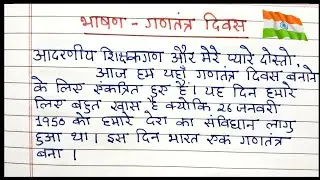 भाषण - गणतंत्र दिवस
आदरणीय शिक्षकगण और मेरे प्यारे दोस्तो,
आज हम यहाँ गणतंत्र दिवस बनाने
के लिए संकत्रित हुए हैं। यह दिन हमारे
लिए बहुत खास है क्योंकि 26 जनवरी
1950 को हमारे देश का संविधान लागु
हुआ था। इस दिन भारत एक गणतंत्र
बना ।